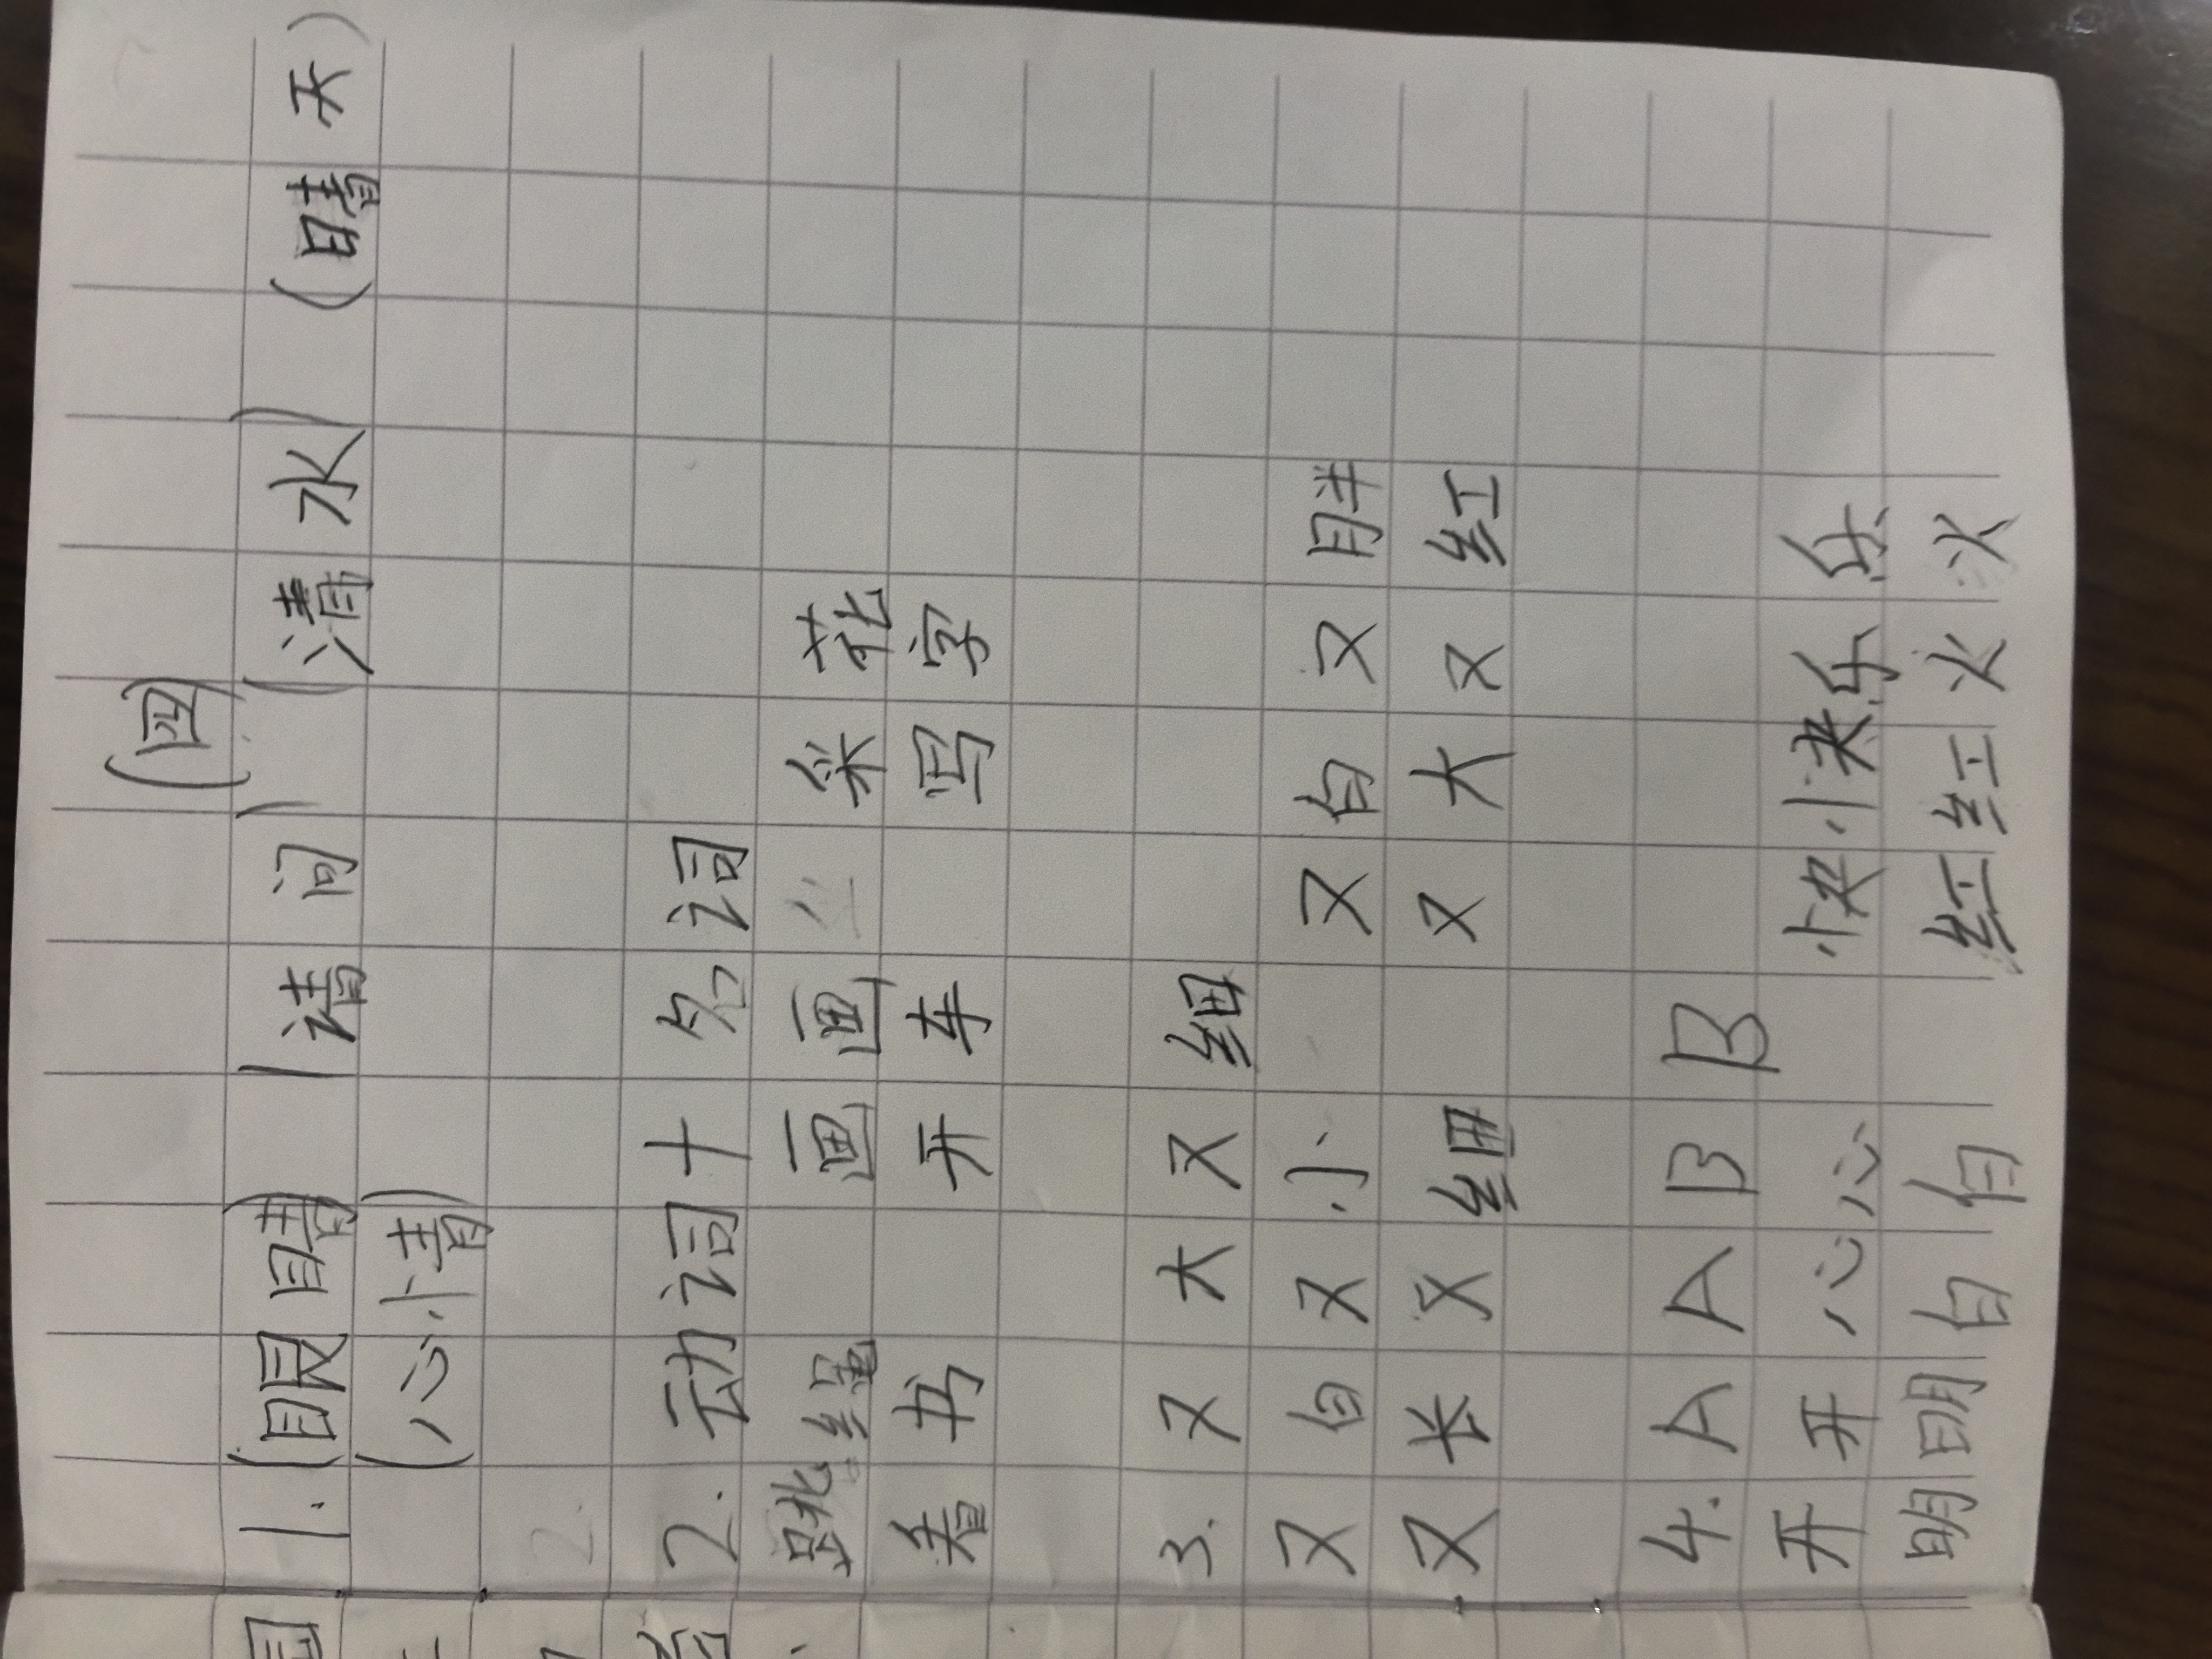 (四)
1. (眼睛) (请问) (清水) (晴天)
(心情)
2. 动词+名词
跳绳 画画 采花
看书 开车 写字
3. 又大又细
又白又小 又白又胖
又长又细 又大又红
4. AABB
开开心心 快快乐乐
明明白白 红红火火